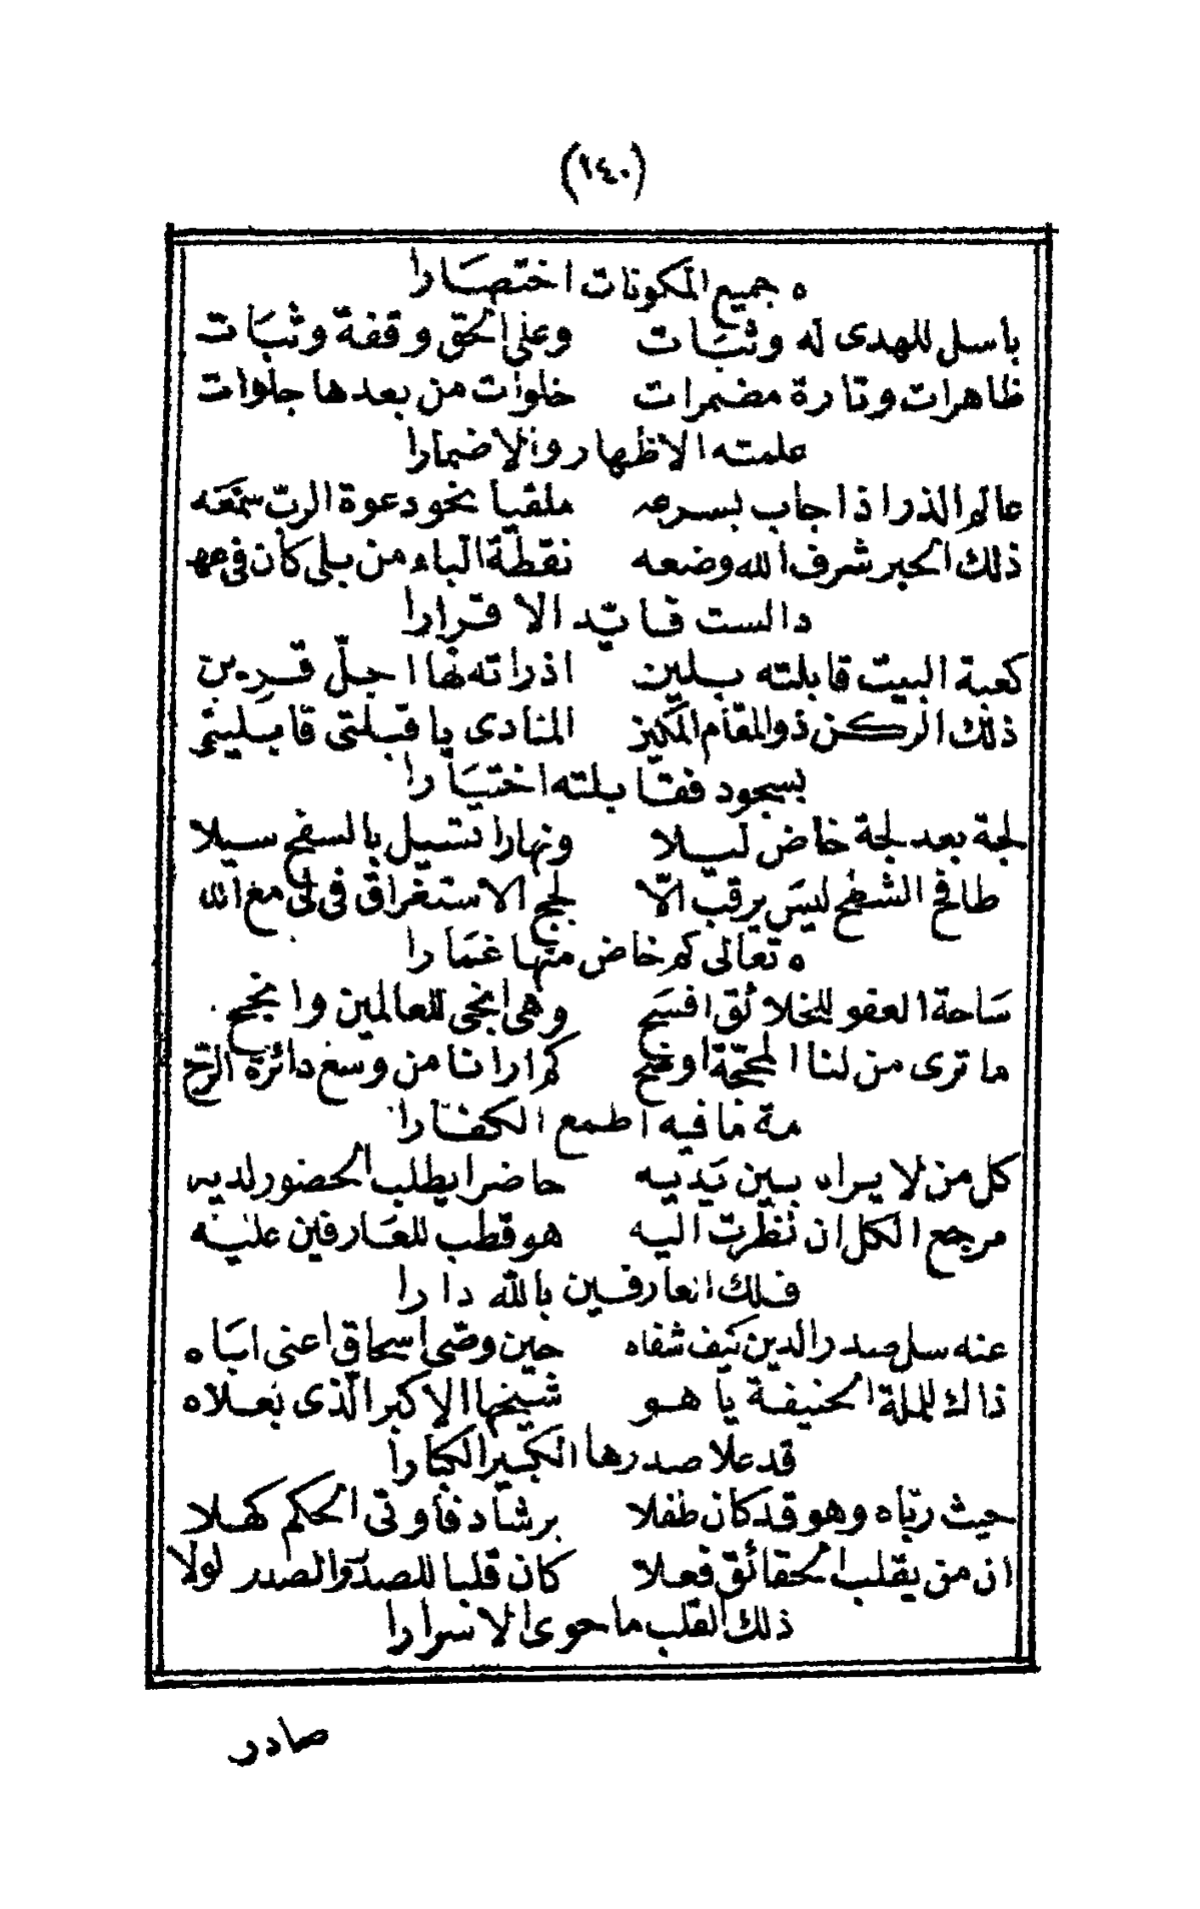 (١٤٠)
ه جميع المكونات اختصارا
باسل للهدى له وثبات وعلى الحق وقفة وثبات
ظاهرات وتارة مضمرات خلوات من بعدها جلوات
علمته الاظهار والاضمارا
عالم الذر اذ اجاب بسرعه ملقيا نحو دعوة الرب سمعه
ذلك الحبر شرف الله وضعه نقطة الباء من بلى كان في عه
د الست قايد الاقرارا
كعبة البيت قابلته بلين اذ راته لها اجل قرين
ذلك الركن ذو المقام المكين المنادى يا قبلتى قابلينى
بسجود فقابلته اختيارا
لجة بعد لجة خاض ليلا ونهارا تسيل بالسفح سيلا
طافح الشطح ليس يرقب الا لجج الاستغراق في لى مع الله
ه تعالى كم خاض منها غمارا
ساحة العفو للخلائق افسح وهى انجى للعالمين وانجح
ما ترى من لنا المحجة اوضح كم ارانا من وسع دائرة الرح
مة ما فيه اطمع الكفارا
كل من لا يراه بين يديه حاضرا يطلب الحضور لديه
مرجع الكل ان نظرت اليه هو قطب للعارفين عليه
فلك العارفين بالله دارا
عنه سل صدر الدين كيف شفاه حين وصى اسحاق اعنى اباه
ذاك للملة الحنيفة يا هو شيخها الاكبر الذى بعلاه
قد علا صدرها الكبير الكبارا
حيث رباه وهو قد كان طفلا برشاد فاوتى الحكم كهلا
ان من يقلب الحقائق فعلا كان قلبا للصدر والصدر لولا
ذلك القلب ما حوى الاسرارا
صادر